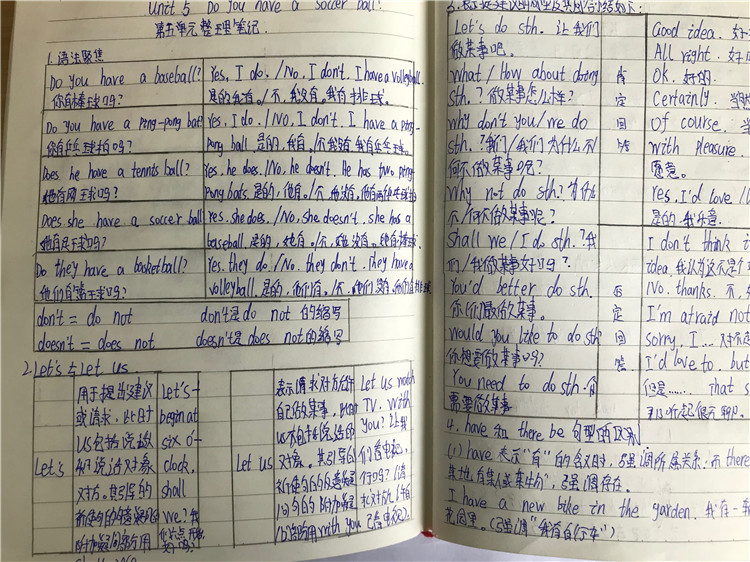 Unit 5 Do you have a soccer ball?
第五单元整理笔记.
1.语法聚焦
Do you have a baseball?
你有棒球吗?
Yes, I do. /No, I don't. I have a volleyball.
是的我有。/不,我没有。我有排球.
Do you have a ping-pong bat?
你有乒乓球拍吗?
Yes, I do. /No, I don't. I have a ping-
pong ball 是的,我有。/不我没有.我有乒乓球.
Does he have a tennis ball?
他有网球吗?
Yes, he does. /No, he doesn't. He has two ping-
pong bats 是的,他有。/不,他没有,他有两个乒乓球拍
Does she have a soccer ball
她有足球吗?
Yes, she does. /No, she doesn't. she has a
baseball. 是的,她有。/不,她没有。她有棒球.
Do they have a basketball?
他们有篮球吗?
Yes, they do. /No, they don't. They have a
volleyball. 是的,他们有。/不,他们没有,他们有排球.
don't = do not don't是 do not 的缩写
doesn't = does not doesn't是 does not的缩写
2.Let's与Let us.
Let's
用于提出建议
或请求,此时
us包括说话
和说话对象
对方。其引导的
祈使句的反意疑问
附加疑问部分用
shall we
Let's
begin at
six o'-
clock,
shall
we?
Let us
表示请求对方允许
自己做某事,此时
us不包括说话的
对象。其引导的
祈使句的反意疑问
句的附加疑问
部分用 with you
Let us watch
TV. With
you? 让我
们看电视,
行吗?
Let's do sth. 让我们
做某事吧.
What / How about doing
sth.? 做某事怎么样?
why don't you/we do
sth. ?你们/我们为什么不
做某事呢?
Why not do sth.? 为什么
不做某事呢?
Shall we/I do sth.? 我
们/我做某事好吗?
You'd better do sth.
你(们)最好做某事。
would you like to do sth
你想要做某事吗?
You need to do sth. 你
需要做某事
肯
定
回
答
否
定
回
答
Good idea. 好
All right. 好
OK. 好的.
Certainly.
Of course.
with pleasure.
愿意.
Yes, I'd love
是的.我乐意.
I don't think i
idea. 我认为这不是个
No, thanks. 不,
I'm afraid not
sorry, I .... 对不起
I'd love to, but
但是...... That s
4. have 和 there be 句型的区别
(1) have 表示"有"的含义时,强调所属关系,而 there
某地有某人或某物,强调存在.
I have a new bike in the garden. 我有一
花园里。(强调"我有自行车")